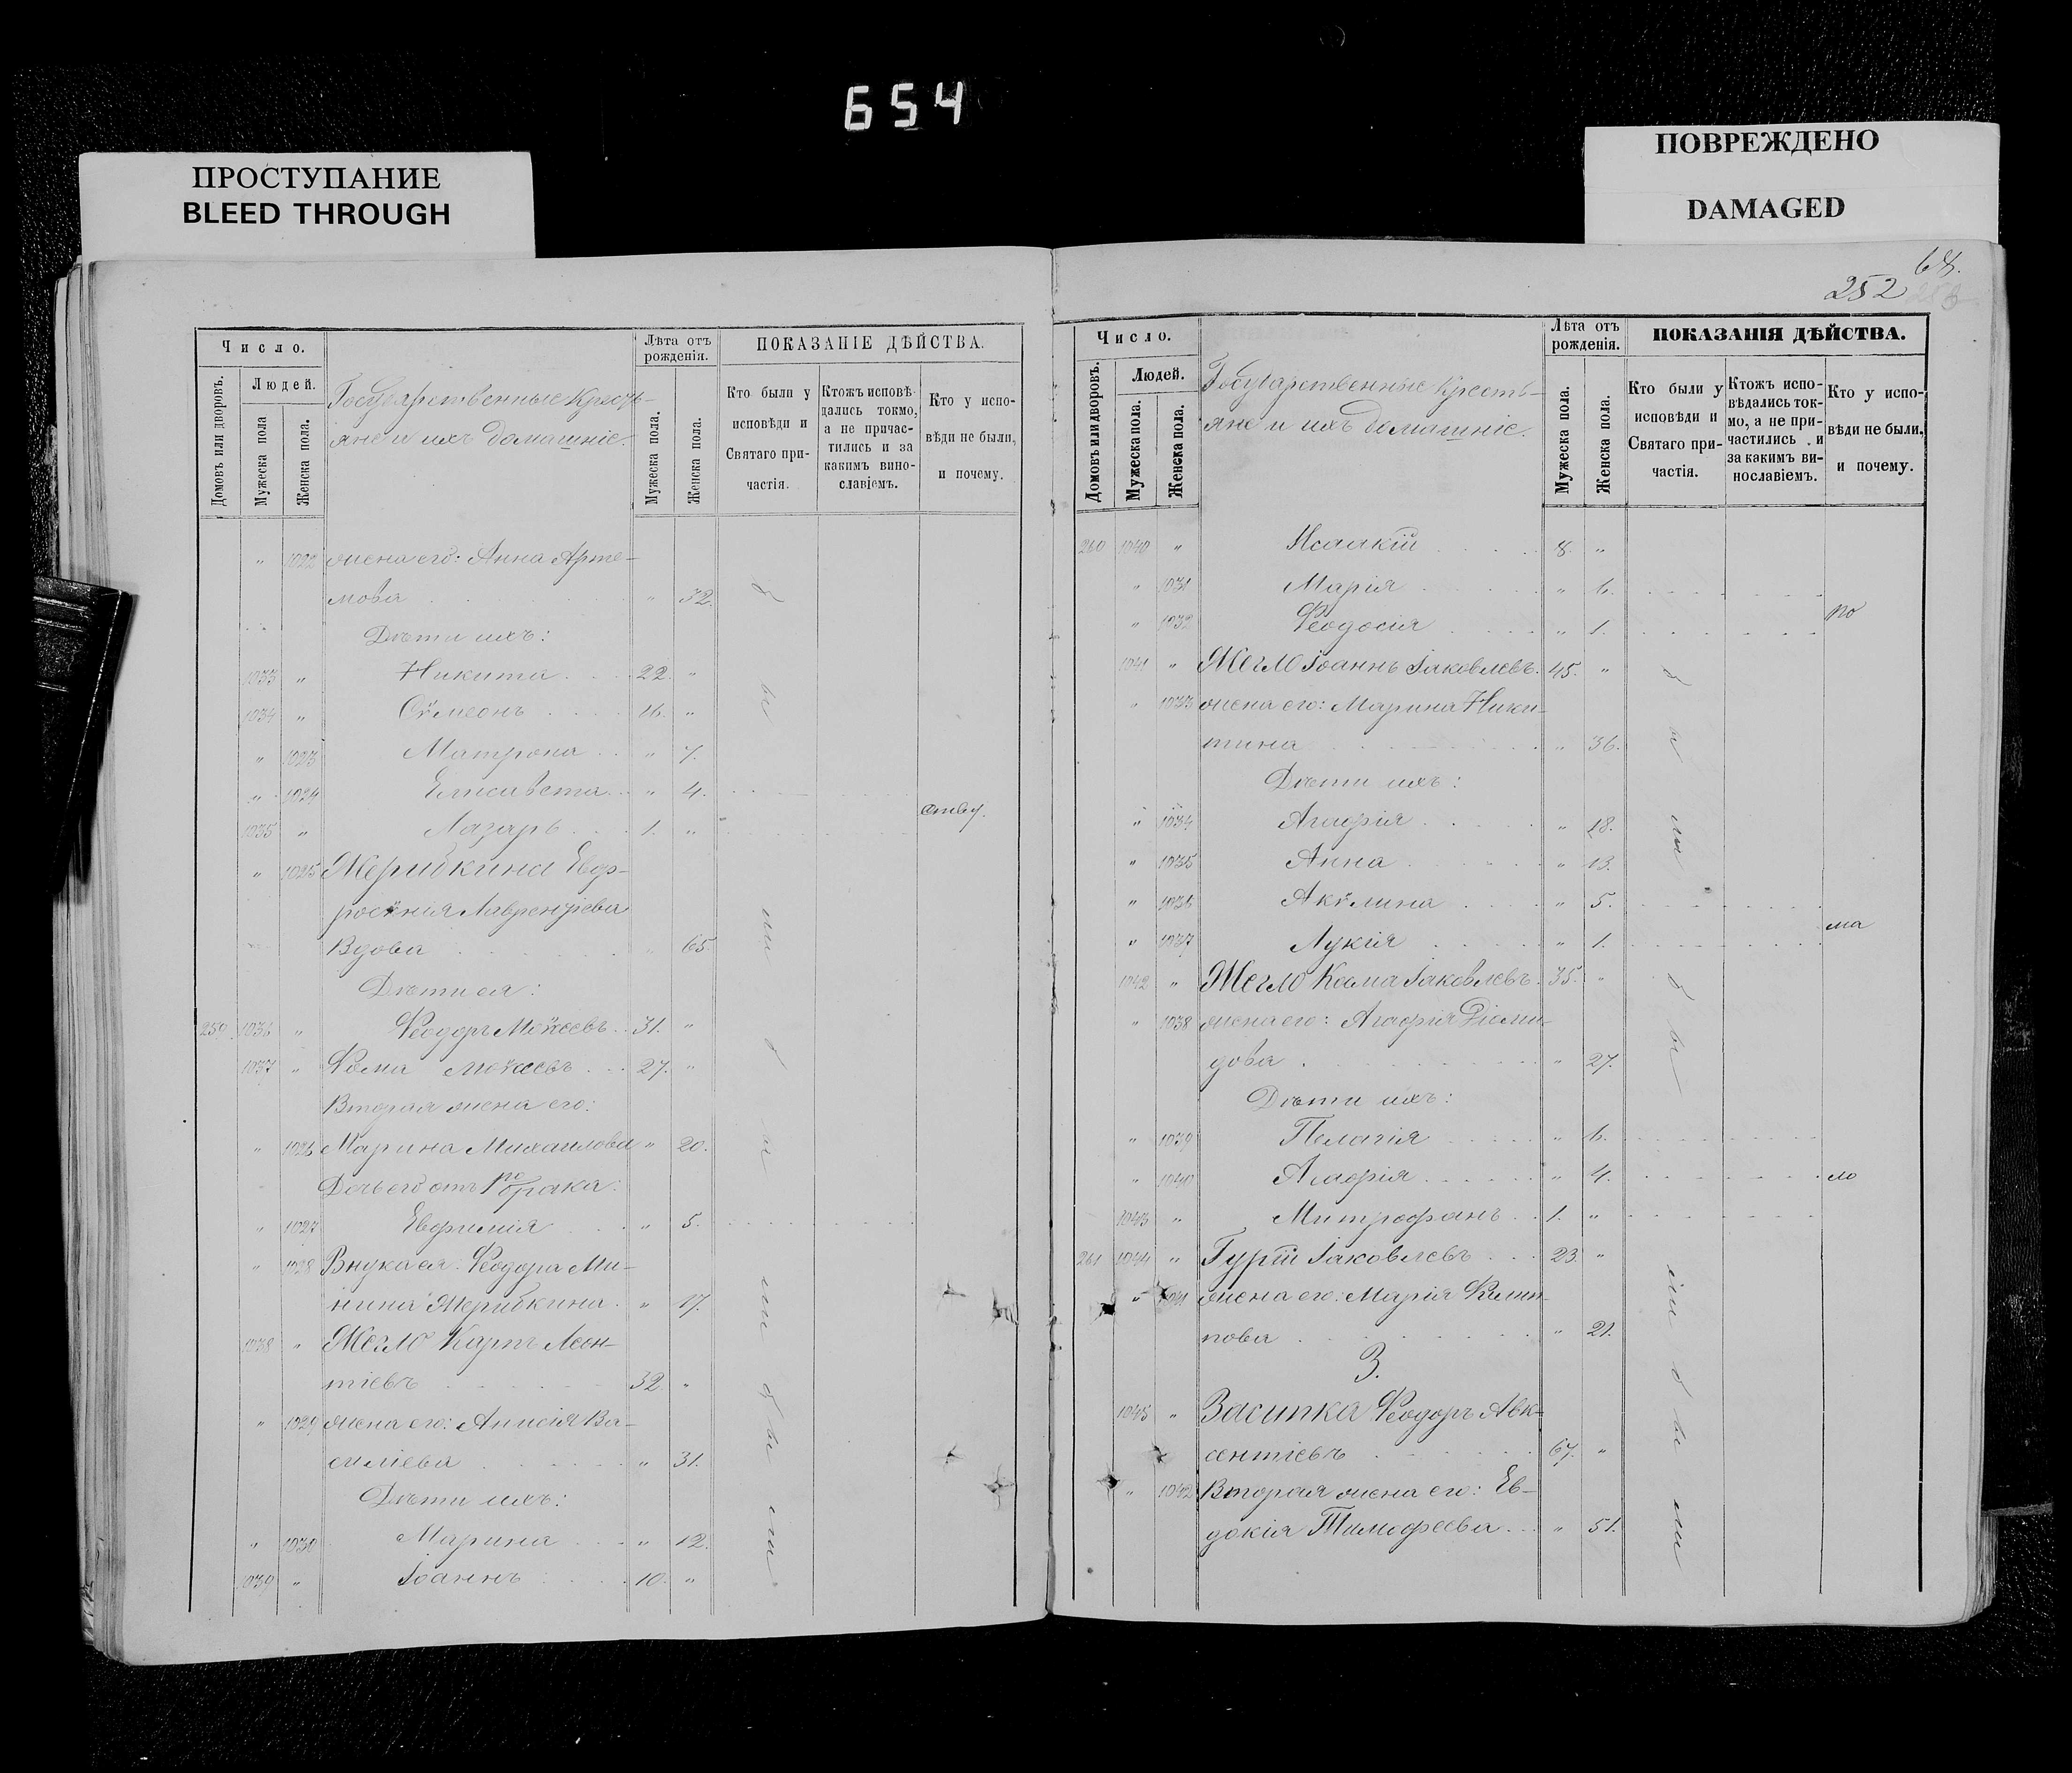 654
ПРОСТУПАНИЕ
BLEED THROUGH
ПОВРЕЖДЕНО
DAMAGED
Число.
Людей.
Домовъ или дворовъ.
Мужеска пола
Женска пола.
Государственные Кресть-
яне и ихъ домашніе.
Лѣта отъ
рожденія.
Мужеска пола.
Женска пола.
ПОКАЗАНІЕ ДѢЙСТВА.
Кто были у
исповѣди и
Святаго при-
частія.
Ктожъ исповѣ-
дались токмо,
а не причас-
тились и за
какимъ вино-
славіемъ.
Кто у испо-
вѣди не были,
и почему.
" 1022 жена его: Анна Арте-
мова " 32.
Дѣти ихъ:
1033 " Никита 22. "
1034 " Сѷмеонъ 16. "
" 1023 Матрона " 7.
" 1024 Елисавета " 4.
1035 " Лазарь 1. " ству.
" 1025 Жерибкина Евф-
росѷнія Лаврентіева
Вдова " 65
Дѣти ея:
259 1036 " Ѳеодоръ Моѷсеевъ 31. "
1037 " Ѳома Моѷсеевъ 27. "
Вторая жена его:
" 1026 Марина Михаилова " 20.
Дочь его отъ 1го брака:
" 1027 Евфимія " 5.
" 1028 Внука ея: Ѳеодора Ми-
нина Жерибкина " 17.
1038 " Жегло Карпъ Леон-
тіевъ 32 "
" 1029 жена его: Анисія Ва-
силіева " 31.
Дѣти ихъ:
" 1030 Марина " 12.
1039 " Іоаннъ 10. "
были
были
были
252
Число.
Людей.
Домовъ или дворовъ.
Мужеска пола.
Женска пола.
Государственные Кресть-
яне и ихъ домашніе.
Лѣта отъ
рожденія.
Мужеска пола.
Женска пола.
ПОКАЗАНІЯ ДѢЙСТВА.
Кто были у
исповѣди и
Святаго при-
частія.
Ктожъ испо-
вѣдались ток-
мо, а не при-
частились и
за какимъ ви-
нославіемъ.
Кто у испо-
вѣди не были,
и почему.
260 1040 " Исаакій 8. "
" 1031 Марія " 6.
" 1032 Ѳеодосія " 1. по
1041 " Жегло Іоаннъ Іаковлевъ. 45. "
" 1033 жена его: Марина Ники-
тина " 36.
Дѣти ихъ:
" 1034 Агафія " 18.
" 1035 Анна " 13.
" 1036 Акѷлина " 5.
" 1037 Лукія " 1. ма
1042 " Жегло Косма Іаковлевъ. 35. "
" 1038 жена его: Агафія Діоми-
дова " 27.
Дѣти ихъ:
" 1039 Пелагія " 6.
" 1040 Агафія " 4. ло
1043 " Митрофанъ 1. "
261 1044 " Гурій Іаковлевъ 23. "
" 1041 жена его: Марія Филип-
пова " 21.
З.
1045 " Засипка Ѳеодоръ Авк-
сентіевъ 67. "
" 1042 Вторая жена его: Ев-
докія Тимофеева " 51.
были
были
были